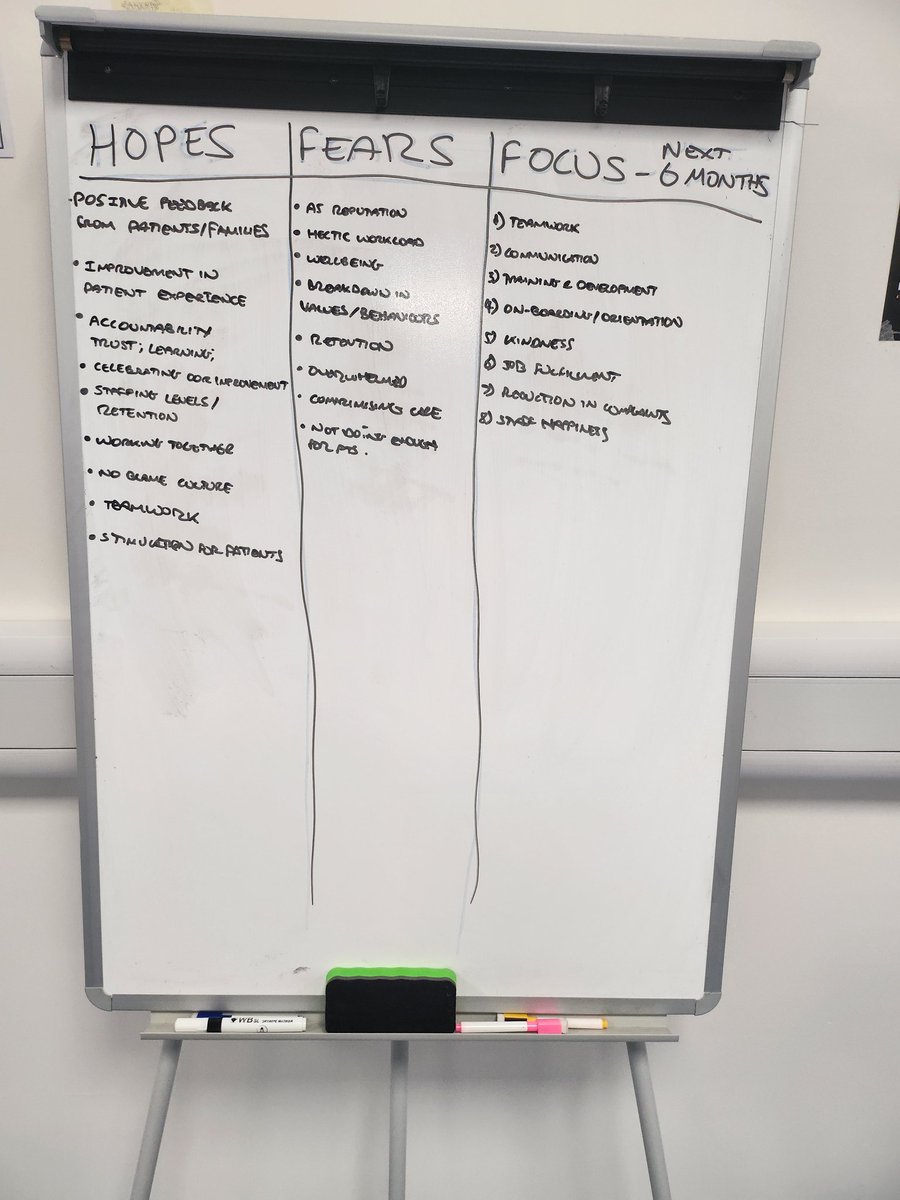 HOPES
·POSITIVE FEEDBACK
FROM PATIENTS/FAMILIES
• IMPROVEMENT IN
PATIENT EXPERIENCE
• ACCOUNTABILITY
TRUST; LEARNING;
• CELEBRATING OUR IMPROVEMENT
• STAFFING LEVELS/
RETENTION
• WORKING TOGETHER
• NO BLAME CULTURE
• TEAMWORK
• STIMULATION FOR PATIENTS
FEARS
• A5 REPUTATION
• HECTIC WORKLOAD
• WELLBEING
• BREAKDOWN IN
VALUES/BEHAVIORS
• RETENTION
• OVERWHELMED
• COMPRIMISING CARE
• NOT DOING ENOUGH
FOR PTS.
FOCUS - NEXT
6 MONTHS
1) TEAMWORK
2) COMMUNICATION
3) TRAINING & DEVELOPMENT
4) ON-BOARDING/ORIENTATION
5) KINDNESS
6) JOB FULFILMENT
7) REDUCTION IN COMPLAINTS
8) STAFF HAPPINESS